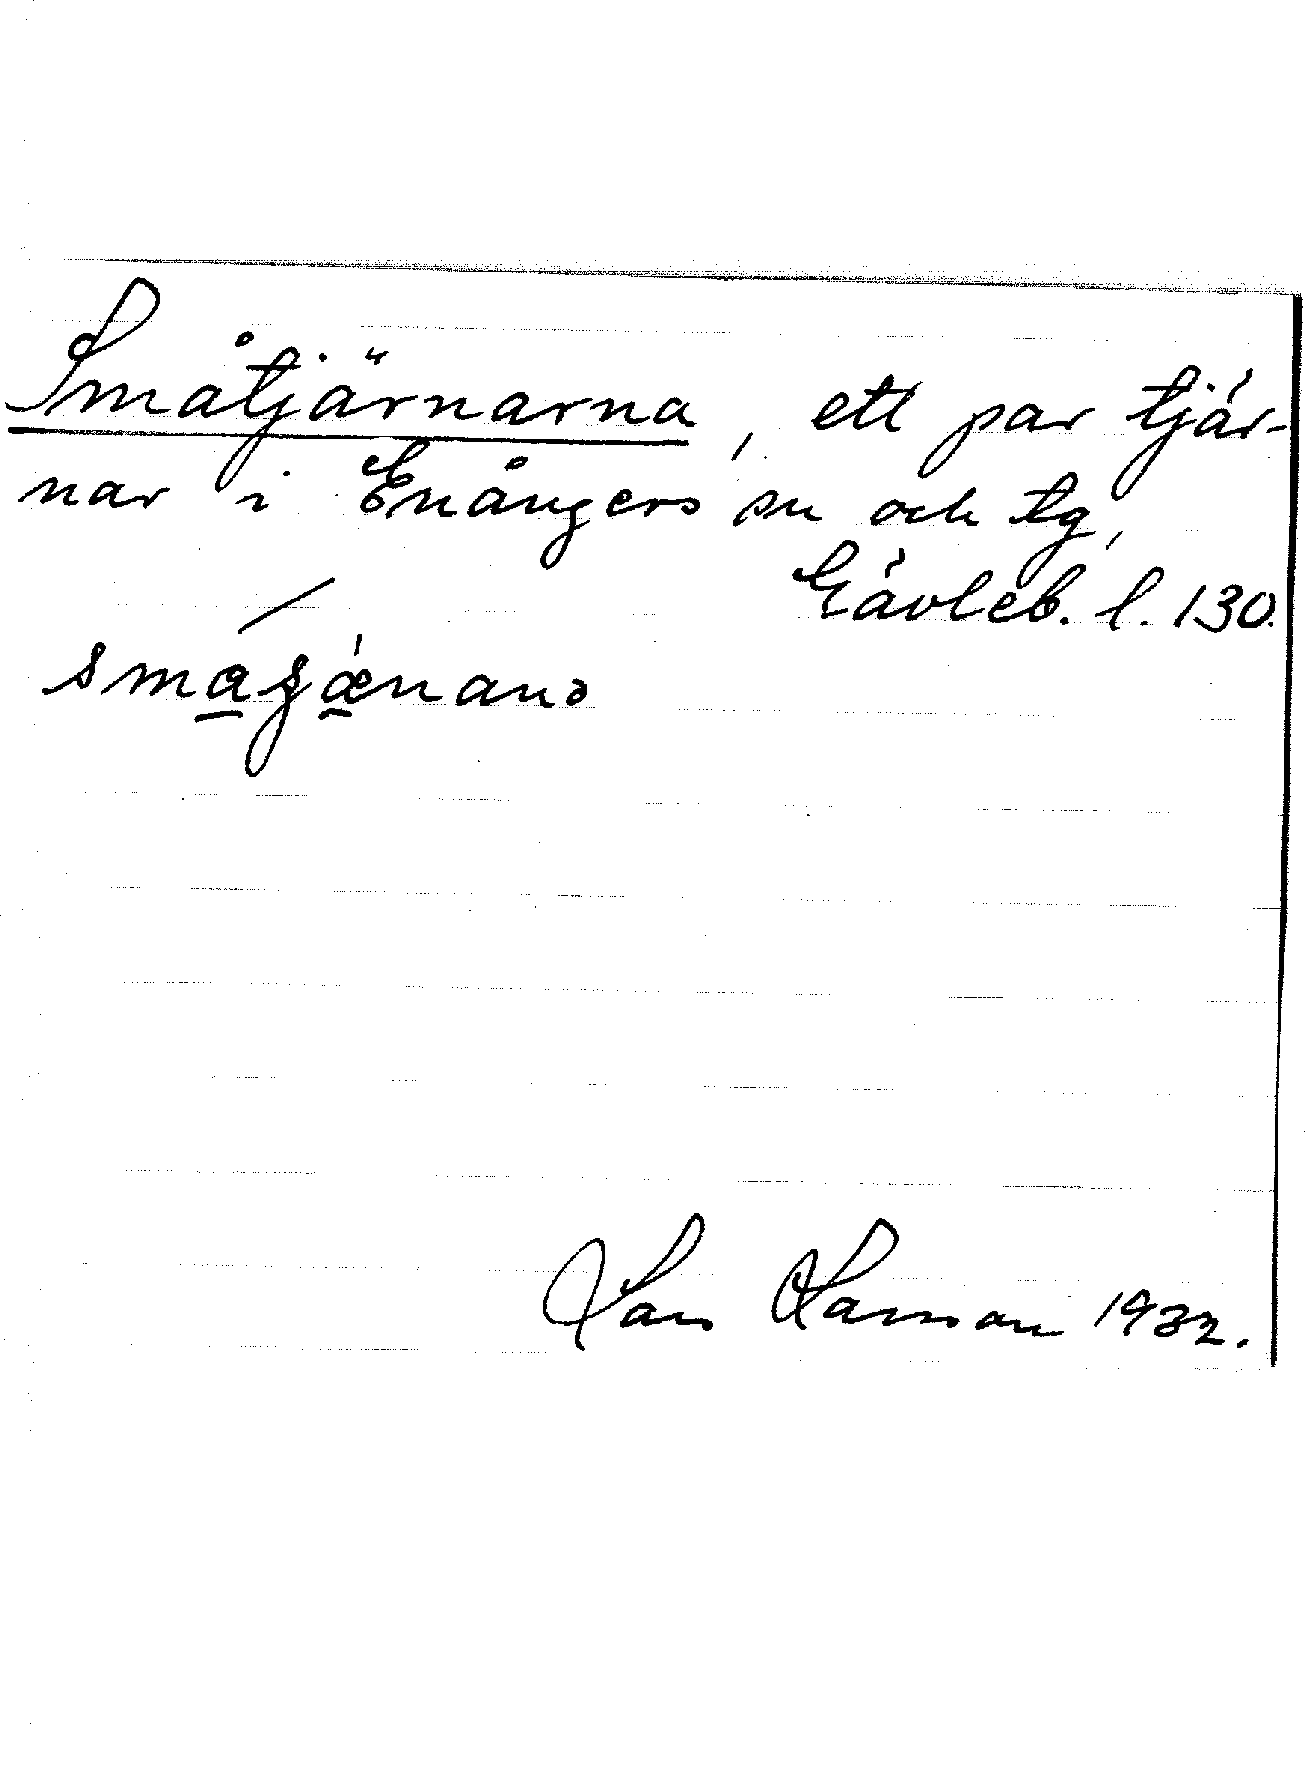 Småtjärnarna, ett par tjär-
nar i Enångers sn och tg,
Gävleb. l. 130.
Lars Larsson 1932.